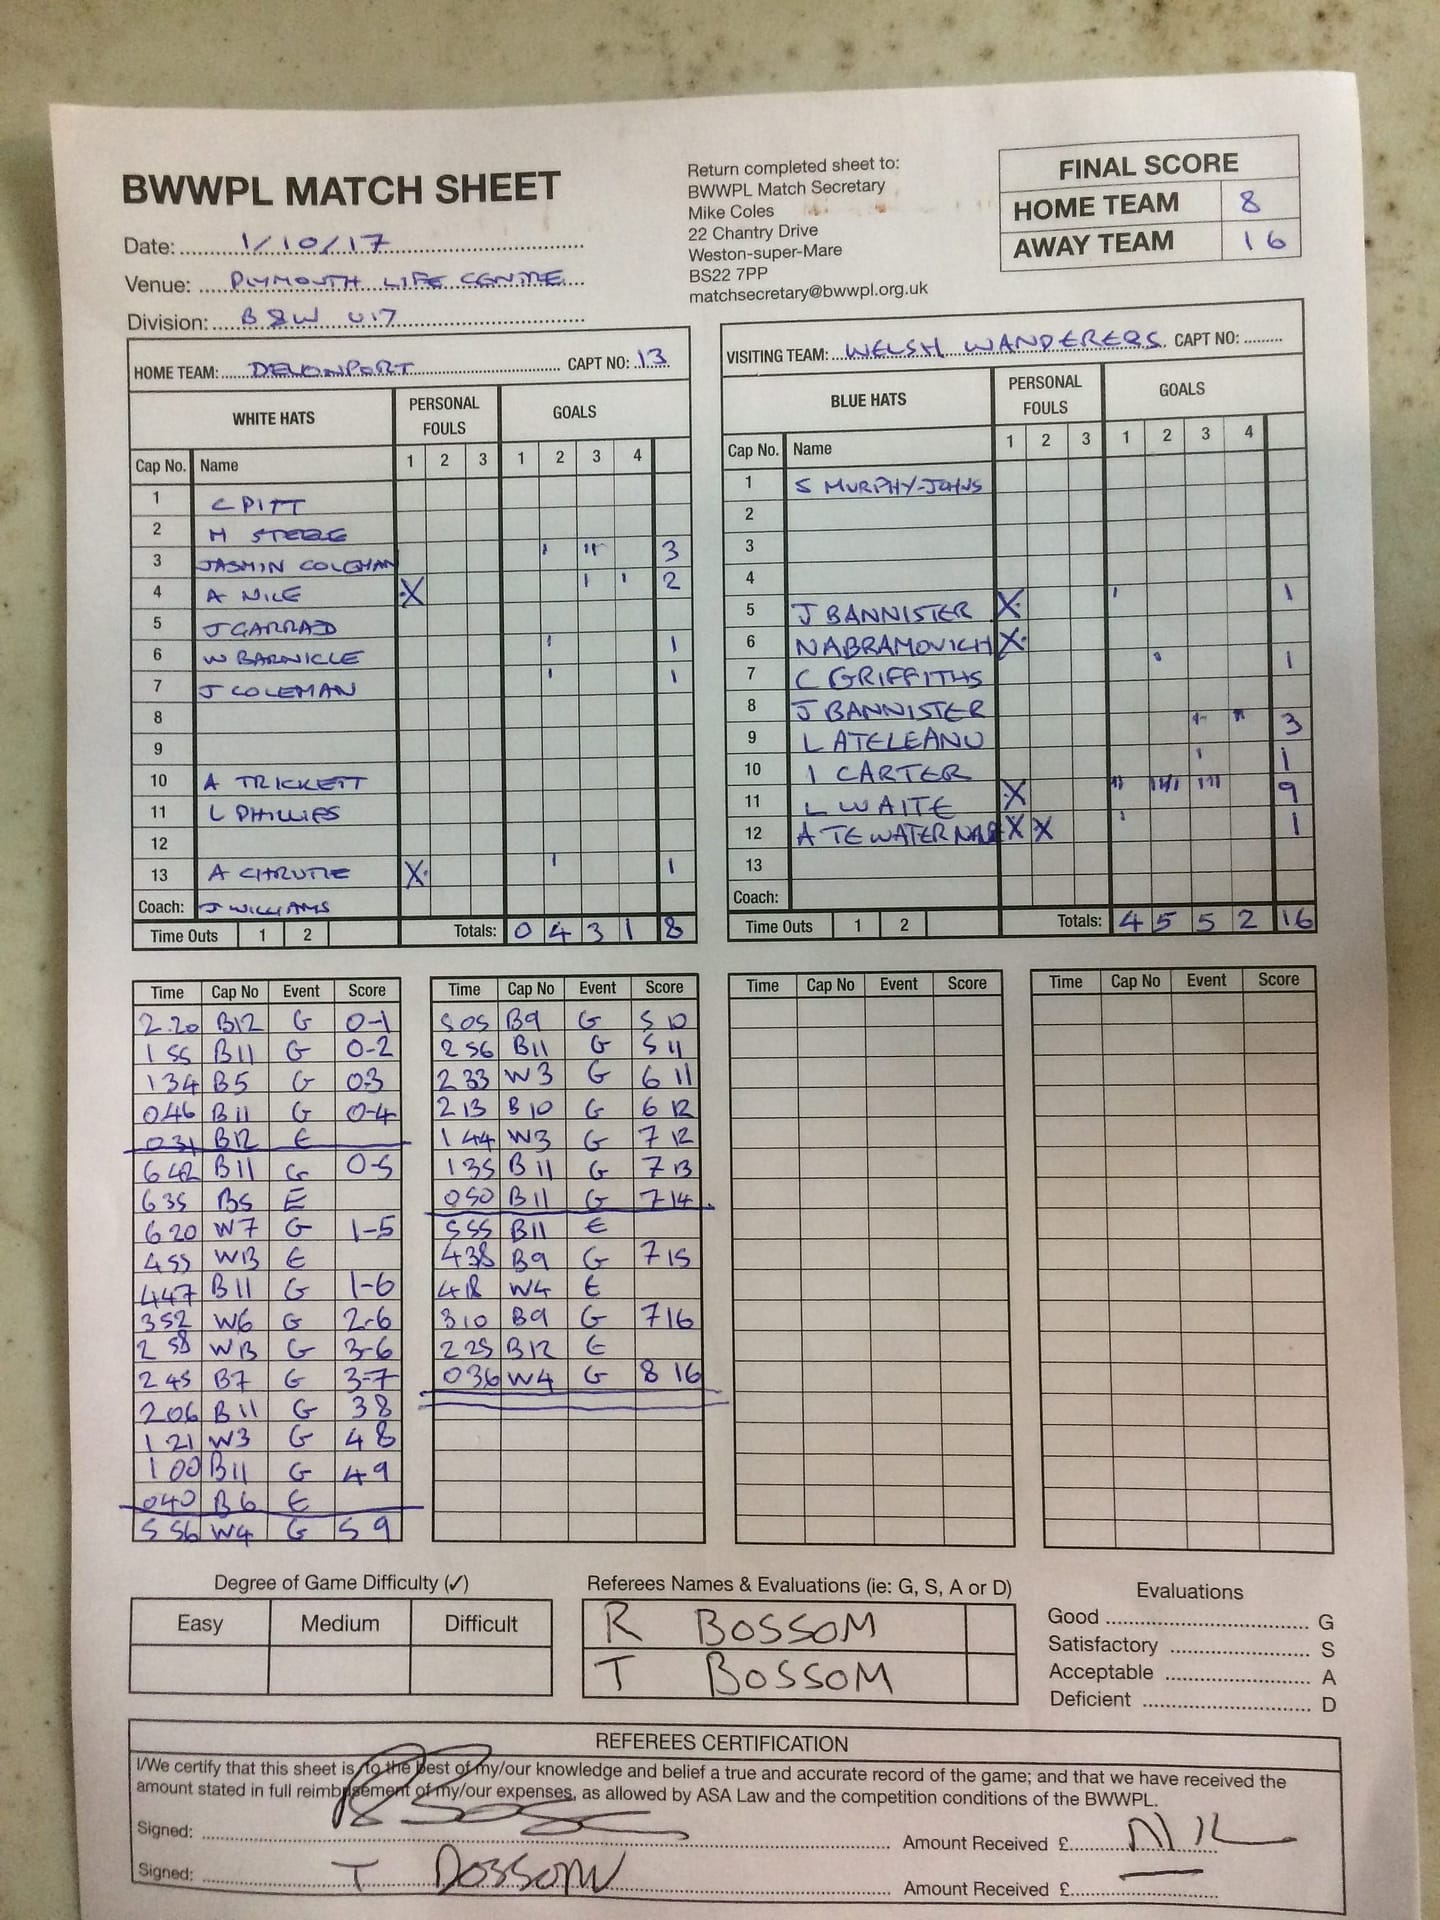 BWWPL MATCH SHEET
Date: 1/10/17
Venue: PLYMOUTH LIFE CENTRE
Division: B&W U17
Return completed sheet to:
BWWPL Match Secretary
Mike Coles
22 Chantry Drive
Weston-super-Mare
BS22 7PP
matchsecretary@bwwpl.org.uk
FINAL SCORE
HOME TEAM 8
AWAY TEAM 16
HOME TEAM: DEVONPORT CAPT NO: 13
WHITE HATS PERSONAL FOULS GOALS
Cap No. Name 1 2 3 1 2 3 4
1 C PITT
2 H STEELE
3 JASMIN COLEMAN ' '' 3
4 A NILE X ' ' 2
5 J GARRAD
6 W BARNICLE ' 1
7 J COLEMAN ' 1
8
9
10 A TRICKETT
11 L PHILLIPS
12
13 A CHRUTIE X ' 1
Coach: J WILLIAMS
Time Outs 1 2 Totals: 0 4 3 1 8
VISITING TEAM: WELSH WANDERERS CAPT NO:
BLUE HATS PERSONAL FOULS GOALS
Cap No. Name 1 2 3 1 2 3 4
1 S MURPHY-JOHNS
2
3
4
5 J BANNISTER X ' 1
6 N ABRAMOVICH X
7 C GRIFFITHS ' 1
8 J BANNISTER
9 L ATELEANU ' '' 3
10 I CARTER ' 1
11 L WAITE X '' '''' ''' 9
12 A TE WATER X X ' 1
13
Coach:
Time Outs 1 2 Totals: 4 5 5 2 16
Time Cap No Event Score
2.20 B12 G 0-1
1 55 B11 G 0-2
1 34 B5 G 0-3
0 46 B11 G 0-4
0 31 B12 E
6 42 B11 G 0-5
6 35 B5 E
6 20 W7 G 1-5
4 55 W13 E
4 47 B11 G 1-6
3 52 W6 G 2-6
2 58 W13 G 3-6
2 45 B7 G 3-7
2 06 B11 G 3 8
1 21 W3 G 4 8
1 00 B11 G 4 9
0 40 B6 E
5 56 W4 G 5 9
Time Cap No Event Score
5 05 B9 G 5 10
2 56 B11 G 5 11
2 33 W3 G 6 11
2 13 B10 G 6 12
1 44 W3 G 7 12
1 35 B11 G 7 13
0 50 B11 G 7 14
5 55 B11 E
4 38 B9 G 7 15
4 18 W4 E
3 10 B9 G 7 16
2 25 B12 E
0 36 W4 G 8 16
Time Cap No Event Score
Time Cap No Event Score
Degree of Game Difficulty (✓)
Easy Medium Difficult
Referees Names & Evaluations (ie: G, S, A or D)
R BOSSOM
T BOSSOM
Evaluations
Good G
Satisfactory S
Acceptable A
Deficient D
REFEREES CERTIFICATION
I/We certify that this sheet is, to the best of my/our knowledge and belief a true and accurate record of the game; and that we have received the
amount stated in full reimbursement of my/our expenses, as allowed by ASA Law and the competition conditions of the BWWPL.
Signed: Amount Received £ NIL
Signed: T BOSSOM Amount Received £